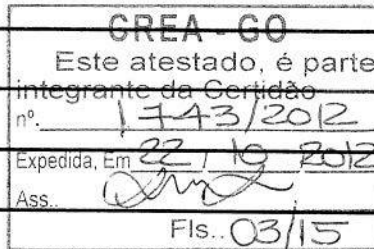 CREA - GO
Este atestado, é parte
integrante da Certidão
nº. 1743/2012
Expedida, Em 22 / 10 2012
Ass..
Fls.. 03/15